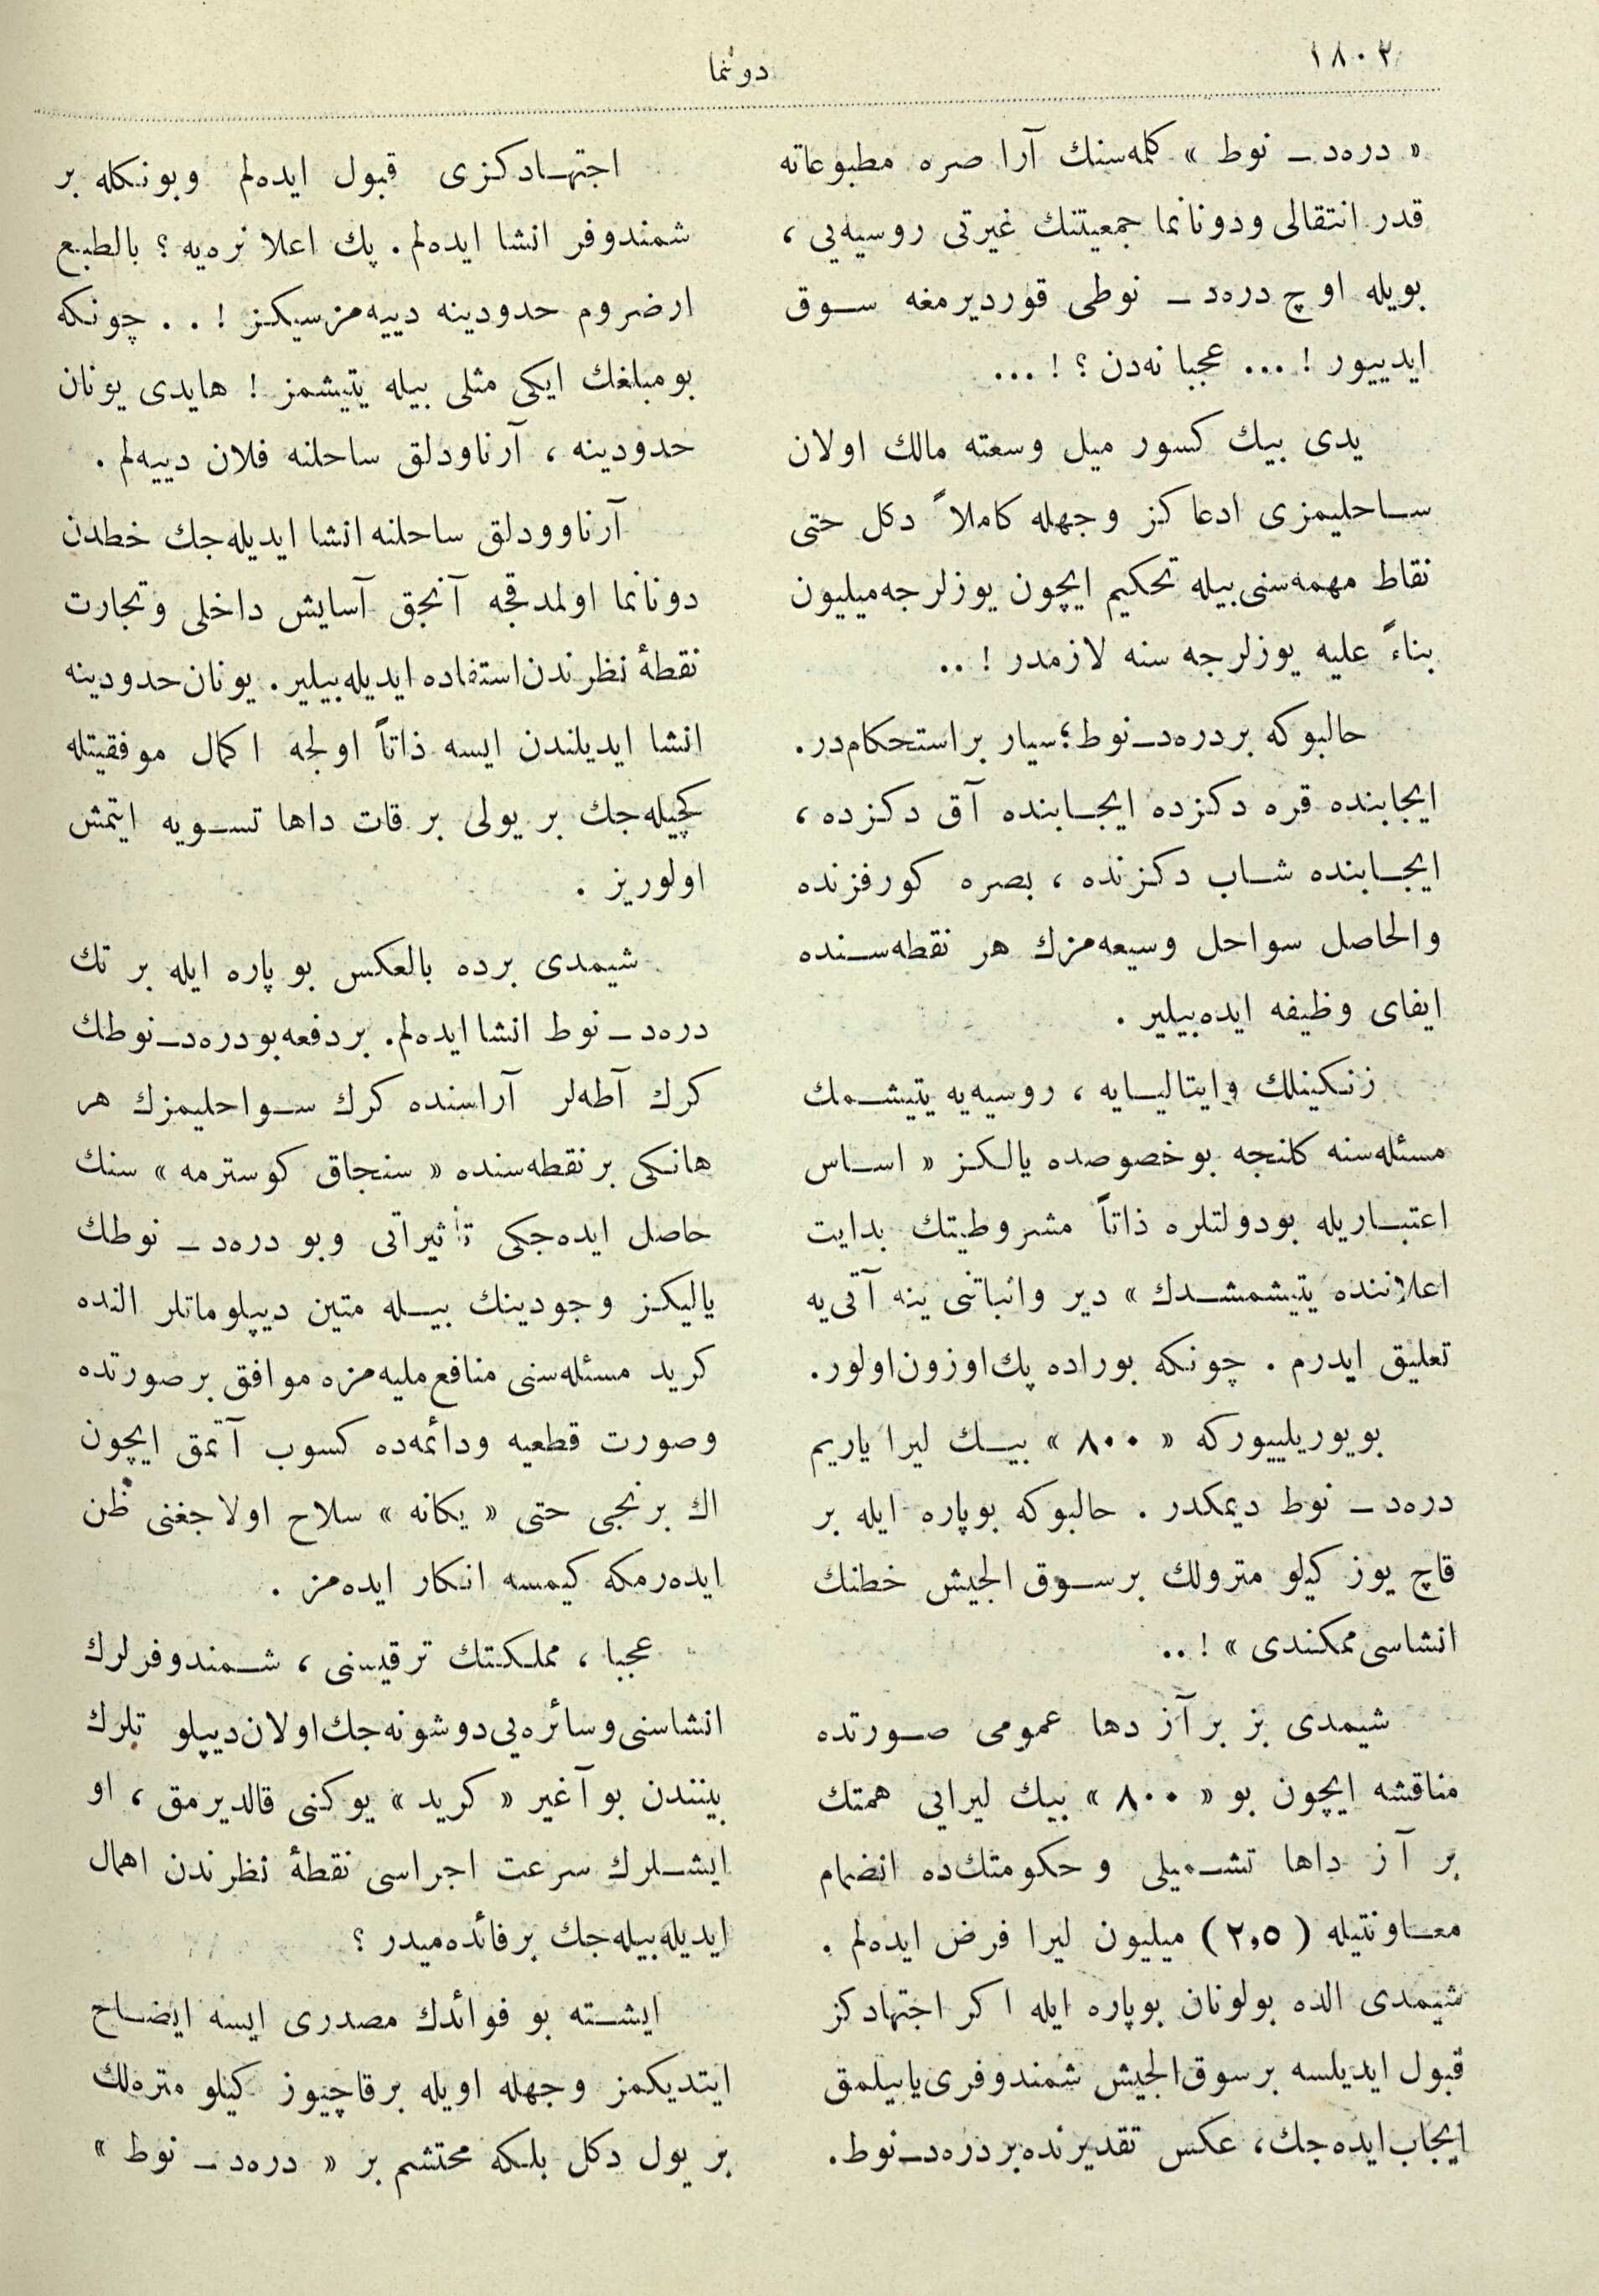 ١٨٠٢
دوننما
« دره‌د ـ نوط » كلمه‌سنك آرا صره مطبوعاته
قدر انتقالى ودونانما جمعيتنك غيرتى روسيه‌يى ،
بويله اوچ دره‌د ـ نوطى قورديرمغه سوق
ايدييور ! ... عجبا نه‌دن ؟ ! ...
يدى بيك كسور ميل وسعته مالك اولان
ساحليمزى ادعا كز وجهله كاملاً دكل حتى
نقاط مهمه‌سنى بيله تحكيم ايچون يوزلرجه ميليون
بناءً عليه يوزلرجه سنه لازمدر ! ..
حالبوكه بر دره‌د ـ نوط ؛ سيار بر استحكام‌در.
ايجابنده قره دكزده ايجابنده آق دكزده ،
ايجابنده شاب دكزنده ، بصره كورفزنده
والحاصل سواحل وسيعه‌مزك هر نقطه‌سنده
ايفاى وظيفه ايده‌بيلير .
زنكينلك وايتاليايه ، روسيه‌يه يتيشمك
مسئله‌سنه كلنجه بو خصوصده يالكز « اساس
اعتباريله بودولتلره ذاتاً مشروطيتك بدايت
اعلاننده يتيشمشدك » دير واثباتنى ينه آتى‌يه
تعليق ايدرم . چونكه بوراده پك اوزون اولور.
بويوريلييوركه « ٨٠٠ » بيك ليرا ياريم
دره‌د ـ نوط ديمكدر . حالبوكه بوپاره ايله بر
قاچ يوز كيلو مترولك بر سوق الجيش خطنك
انشاسى ممكندى » ! ..
شيمدى بز بر آز دها عمومى صورتده
مناقشه ايچون بو « ٨٠٠ » بيك ليرايى همتك
بر آز داها تشميلى وحكومتك‌ده انضمام
معاونتيله ( ٢,٥ ) ميليون ليرا فرض ايده‌لم .
شيمدى الده بولونان بوپاره ايله اكر اجتهادكز
قبول ايديلسه بر سوق الجيش شمندوفرى ياپيلمق
ايجاب ايده‌جك ، عكس تقديرنده بر دره‌د ـ نوط.
اجتهادكزى قبول ايده‌لم وبونكله بر
شمندوفر انشا ايده‌لم. پك اعلا نره‌يه ؟ بالطبع
ارضروم حدودينه دييه‌مزسيكز ! .. چونكه
بومبلغك ايكى مثلى بيله يتيشمز ! هايدى يونان
حدودينه ، آرناودلق ساحلنه فلان دييه‌لم .
آرناوودلق ساحلنه انشا ايديله‌جك خطدن
دونانما اولمدقجه آنجق آسايش داخلى وتجارت
نقطهٔ نظرندن استفاده ايديله‌بيلير. يونان حدودينه
انشا ايديلندن ايسه ذاتاً اولجه اكمال موفقيتله
كچيله‌جك بر يولى بر قات داها تسويه ايتمش
اولوريز .
شيمدى برده بالعكس بو پاره ايله بر تك
دره‌د ـ نوط انشا ايده‌لم. بر دفعه بودره‌د ـ نوطك
كرك آطه‌لر آراسنده كرك سواحليمزك هر
هانكى بر نقطه‌سنده « سنجاق كوسترمه » سنك
حاصل ايده‌جكى تأثيراتى وبو دره‌د ـ نوطك
ياليكز وجودينك بيله متين ديپلوماتلر النده
كريد مسئله‌سنى منافع مليه‌مزه موافق بر صورتده
وصورت قطعيه ودائمه‌ده كسوب آتمق ايچون
اك برنجى حتى « يكانه » سلاح اولاجغنى ظن
ايده‌رمكه كيمسه انكار ايده‌مز .
عجبا ، مملكتك ترقيسنى ، شمندوفرلرك
انشاسنى وسائره‌يى دوشونه‌جك اولان ديپلو تلرك
بينندن بو آغير « كريد » يوكنى قالديرمق ، او
ايشلرك سرعت اجراسى نقطهٔ نظرندن اهمال
ايديله‌بيله‌جك بر فائده‌ميدر ؟
ايشته بو فوائدك مصدرى ايسه ايضاح
ايتديكمز وجهله اويله بر قاچيوز كيلو متره‌لك
بر يول دكل بلكه محتشم بر « دره‌د ـ نوط »